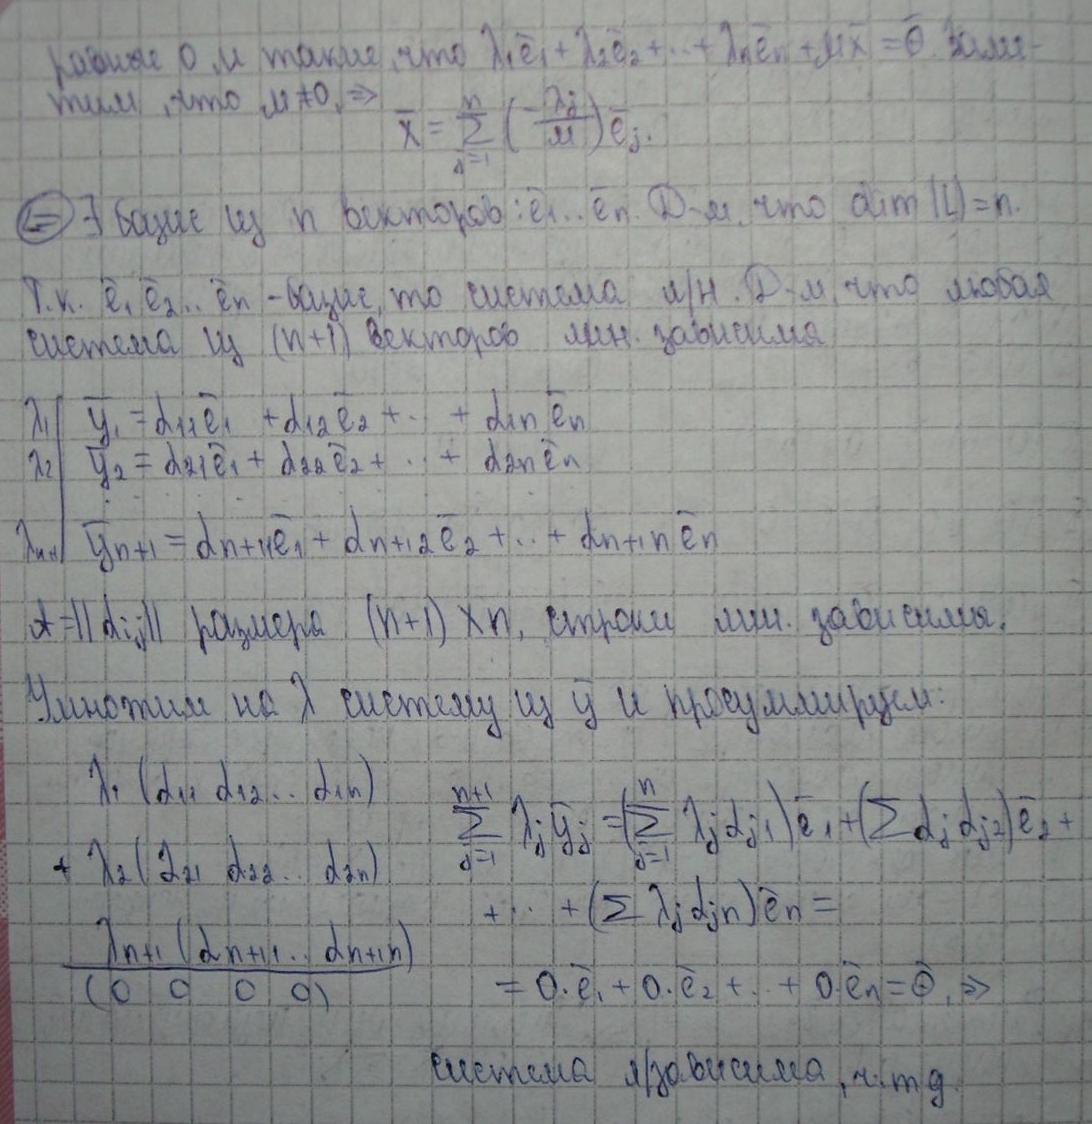 равные 0 и такие, что λ₁ē₁ + λ₂ē₂ + ... + λₙēₙ + μx̄ = ō. Заме-
тим, что μ≠0, ⇒
x̄ = ∑ⱼ₌₁ⁿ (-λⱼ/μ) ēⱼ.
⇐ ∃ базис из n векторов: ē₁...ēₙ. Д-м, что dim(L)=n.
Т.к. ē₁ ē₂... ēₙ - базис, то система л/н. Д-м, что любая
система из (n+1) векторов лин. зависима
λ₁| ȳ₁ = α₁₁ē₁ + α₁₂ē₂ + ... + α₁ₙēₙ
λ₂| ȳ₂ = α₂₁ē₁ + α₂₂ē₂ + ... + α₂ₙēₙ
. . . . .
λₙ₊₁| ȳₙ₊₁ = αₙ₊₁₁ē₁ + αₙ₊₁₂ē₂ + ... + αₙ₊₁ₙēₙ
α = ||αᵢⱼ|| размера (n+1)×n, строки лин. зависимы.
Умножим на λ систему из ȳ и просуммируем:
λ₁ (α₁₁ α₁₂... α₁ₙ)
+ λ₂ (α₂₁ α₂₂... α₂ₙ)
λₙ₊₁ (αₙ₊₁₁... αₙ₊₁ₙ)
(0 0 0 0)
∑ⱼ₌₁ⁿ⁺¹ λⱼȳⱼ = (∑ⱼ₌₁ⁿ λⱼαⱼ₁)ē₁ + (∑αⱼαⱼ₂)ē₂ +
+ ... + (∑λⱼαⱼₙ)ēₙ =
= 0·ē₁ + 0·ē₂ + ... + 0·ēₙ = ō, ⇒
система л/зависима, ч.т.д.